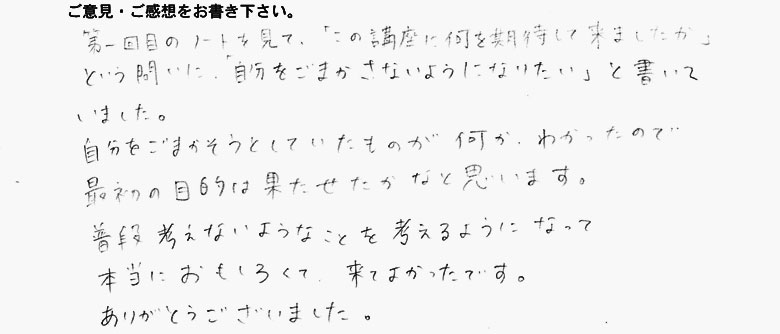 ご意見・ご感想をお書き下さい。
第一回目のノートを見て、「この講座に何を期待して来ましたか」
という問いに、「自分をごまかさないようになりたい」と書いて
いました。
自分をごまかそうとしていたものが何か、わかったので
最初の目的は果たせたかなと思います。
普段考えないようなことを考えるようになって
本当におもしろくて、来てよかったです。
ありがとうございました。